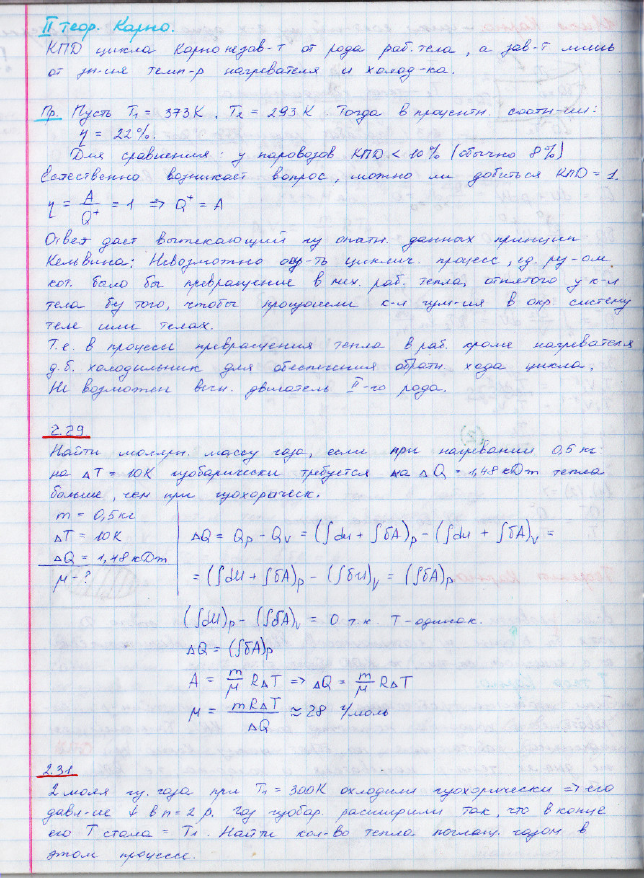 II теор. Карно.
КПД цикла Карно незав-т от рода раб. тела, а зав-т лишь
от зн-ия темп-р нагревателя и холод-ка.
Пр. Пусть T₁ = 373К, T₂ = 293К. Тогда в процентн соотн-ии:
η = 22%.
Для сравнения: у паровозов КПД < 10% (обычно 8%)
Естественно возникает вопрос, можно ли добиться КПД = 1.
η = A/Q⁺ = 1 => Q⁺ = A
Ответ дает вытекающий из опытн. данных принцип
Кельвина: Невозможно осу-ть циклич. процесс, ед. рез-ом
кот. было бы превращение в мех. раб. тепла, отнятого у к-л
тела без того, чтобы произошли к-л изм-ия в окр. систему
теле или телах.
Т.е. в процессе превращения тепла в раб. кроме нагревателя
д.б. холодильник для обеспечения обратн. хода цикла.
Не возможен вечн. двигатель II-го рода.
2.29
Найти молярн. массу газа, если при нагревании 0,5 кг
на ΔT = 10К изобарически требуется на ΔQ = 1,48 кДж тепла
больше, чем при изохорическ.
m = 0,5кг
ΔT = 10К
ΔQ = 1,48 кДж
μ - ?
ΔQ = Qp - Qv = (∫dU + ∫δA)p - (∫dU + ∫δA)v =
= (∫dU + ∫δA)p - (∫dU)v = (∫δA)p
(∫dU)p - (∫δA)v = 0 т.к. T - одинак.
ΔQ = (∫δA)p
A = m/μ RΔT => ΔQ = m/μ RΔT
μ = mRΔT/ΔQ ≈ 28 г/моль
2.31
2 моля ид. газа при T₁ = 300К охладили изохорически => его
давл-ие ↓ в n = 2 р. Газ изобар. расширили так, что в конце
его T стала = T₁. Найти кол-во тепла поглащ. газом в
этом процессе.